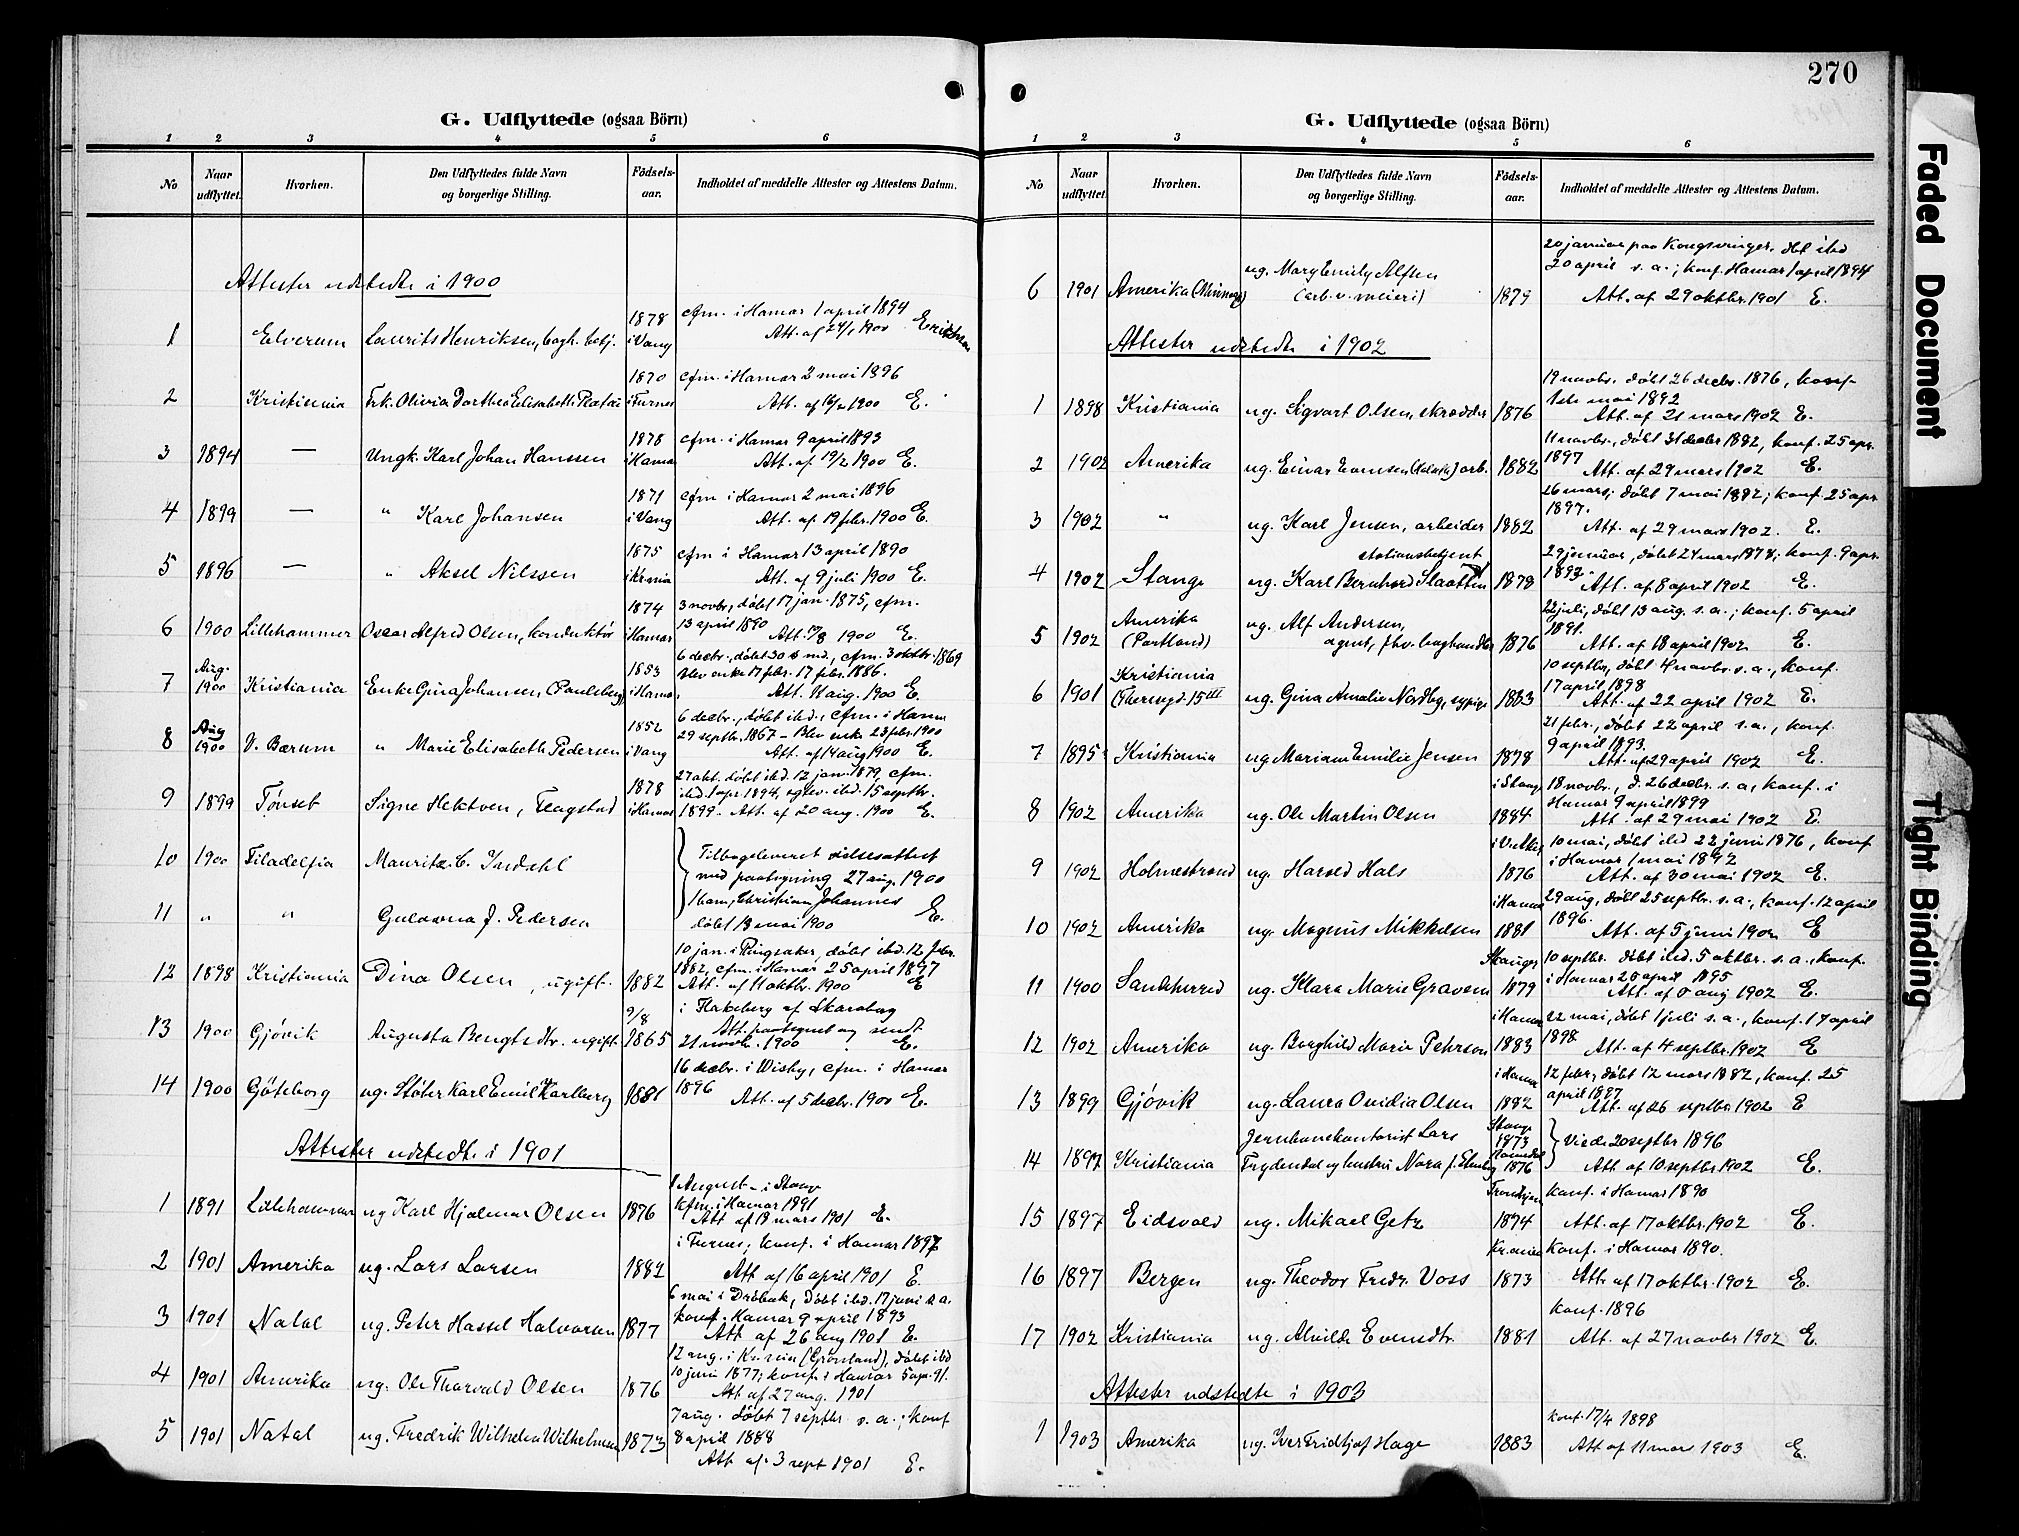 270
G. Udflyttede (ogsaa Börn)
1 2 3 4 5 6
No
Naar udflyttet.
Hvorhen.
Den Udflyttedes fulde Navn
og borgerlige Stilling.
Födsels-
aar.
Indholdet af meddelte Attester og Attestens Datum.
Attester udstedte i 1900
1878 cfm. i Hamar 1 april 1894
1 Elverum Laurits Henriksen, bogh. betj. i Vang Att. af 24/1 1900
1870 cfm. i Hamar 2 mai 1896
2 Kristiania Frk. Olivia Dorthea Elisabeth i Furnes Att. af 1900 E.
1878 cfm. i Hamar 9 april 1893
3 1894 — Ungk. Karl Johan Hanssen i Hamar Att. af 19/2 1900 E.
1871 cfm i Hamar 2 mai 1896
4 1899 — " Karl Johansen i Vang Att. af 19 febr. 1900 E.
1875 cfm i Hamar 13 april 1890
5 1896 — " Aksel Nilssen i Krania Att. af 9 juli 1900 E.
1874 3 novbr, döbt 17 jan. 1875, cfm.
13 april 1890
6 1900 Lillehammer Oscar Alfred Olsen, konduktör i Hamar Att. 1900 E.
6 decbr., döbt 30 s. md., cfm. 3 oktbr. 1869
Aug. 1853 blev enke 17 febr. 17 febr. 1886.
7 1900 Kristiania Enke Gina Johansen (Paulsberg) i Hamar Att. 11 aug. 1900 E.
6 decbr., döbt ibd., cfm. i Hamar
Aug 1852 29 septbr. 1867 – Blev enke 23 febr. 1900
8 1900 V. Bærum " Marie Elisabeth Pedersen i Vang Att. af 14 aug 1900 E.
27 okt. döbt ibd. 12 jan. 1879, cfm.
1878 ibd. 1 apr 1894, ibd. 15 septbr.
9 1899 Tönset Signe Hektoen, Flagstad i Hamar 1899. Att. af 20 aug. 1900 E.
10 1900 Filadelfia Mauritz C. Indahl Tilbageleveret vielsesattest
med paategning 27 aug. 1900
11 " " Guldovna J. Pedersen Christian Johannes E.
döbt 13 mai 1900
10 jan. i Ringsaker, döbt ibd. 12 febr.
1882, cfm. i Hamar 25 april 1897
12 1898 Kristiania Dina Olsen, ugift. 1882 Att. af 11 oktbr. 1900 E
9/8 i Flakeberg af Skaraborg
Att. paategnet og sendt
13 1900 Gjövik Augusta Bengtsdtr. ugift 1865 21 novbr. 1900 E.
16 decbr. i Wisby, cfm. i Hamar
1896
14 1900 Göteborg ug. Stöter Karl Emil Karlberg 1881 Att. af 5 decbr. 1900 E.
Attester udstedte i 1901
1 August – i Stange
kfm. i Hamar 1891
1 1891 Lillehammer ug Karl Hjalmar Olsen 1876 Att af 19 mars 1901 E.
i Furnes; konf. i Hamar 1897
2 1901 Amerika ug. Lars Larsen 1882 Att af 16 april 1901 E.
6 mai i Dröbak, döbt ibd. 17 juni s. a.
konf. Hamar 9 april 1893
3 1901 Natal ug. Peter Hassel Halvorsen 1877 Att af 26 aug 1901 E.
12 aug. i Kr.ania (Grönland), döbt ibd
10 juni 1877; konf. i Hamar 5 apr. 91.
4 1901 Amerika ug. Ole Thorvald Olsen 1876 Att af 27 aug. 1901
7 aug. döbt 7 septbr s. a.; konf
5 1901 Natal ug. Fredrik Wilhelm Wilhelmsen 1873 8 april 1888
Att af. 3 sept 1901 E.
G. Udflyttede (ogsaa Börn)
1 2 3 4 5 6
No
Naar udflyttet.
Hvorhen.
Den Udflyttedes fulde Navn
og borgerlige Stilling.
Födsels-
aar.
Indholdet af meddelte Attester og Attestens Datum.
20 januar paa Kongsvinger. dbt ibd
ug. Mary Emily Alfsen 20 april s. a.; konf. Hamar 1 april 1894
6 1901 Amerika (arb. v. meieri) 1879 Att. af 29 oktbr. 1901 E.
Attester udstedte i 1902
19 novbr. döbt 26 decbr. 1876, konf.
1ste mai 1892
1 1898 Kristiania ug. Sigvart Olsen, skrædder 1876 Att. af 21 mars 1902 E.
11 novbr., döbt 31 decbr 1882, konf. 25 apr.
1897
2 1902 Amerika ug. Einar arb. 1882 Att. af 29 mars 1902 E.
26 mars; döbt 7 mai 1882; konf. 25 apr.
1897.
3 1902 " ug. Karl Jensen, arbeider 1882 Att. af 29 mars 1902. E.
stationsbetjent 29 januar, döbt 24 mars 1878; konf. 9 apr.
1893.
4 1902 Stange ug. Karl Bernhard Slaatten 1878 Att. af 8 april 1902 E.
Amerika ug. Alf Andersen, 22 juli, döbt 13 aug. s. a.; konf. 5 april
1891.
5 1902 (Portland) agent, fhv. boghandler 1876 Att. af 18 april 1902. E.
Kristiania 10 septbr, döbt 4 novbr. s. a., konf.
17 april 1898
6 1901 (Theresgd. 15 III ug. Gina Amalie Nordbg, sypige 1883 Att. af 22 april 1902 E.
21 febr., döbt 22 april s. a., konf.
9 april 1893.
7 1895 Kristiania ug Mariane Emilie Jensen 1878 Att. af 29 april 1902 E.
i Stange 18 novbr., d. 26 decbr. s. a, konf. i
Hamar 9 april 1899
8 1902 Amerika ug. Ole Martin Olsen 1884 Att. af 29 mai 1902 E.
i V. Aker 10 mai, döbt ibd 22 juni 1876, konf
i Hamar 1 mai 1892
9 1902 Holmestrand ug. Harald Hals 1876 Att. af 30 mai 1902 E.
i Hamar 29 aug, döbt 25 septbr. s. a., konf. 12 april
1896.
10 1902 Amerika ug. Magnus Mikkelsen 1881 Att. af 5 juni 1902 E
Stange 10 septbr. döbt ibd. 5 oktbr. s. a., konf.
i Hamar 20 april 1895
11 1900 Sandherred ug. Klara Marie Graven 1879 Att. af 8 aug 1902 E.
i Hamar 22 mai, döbt 1 juli s. a., konf. 17 april
1898
12 1902 Amerika ug. Borghild Marie Pehrson 1883 Att. af 4 septbr. 1902 E
i Hamar 12 febr; döbt 12 mars 1882, konf. 25
april 1897
13 1899 Gjövik ug. Laura Ovidia Olsen 1882 Att. af 26 septbr. 1902 E
Jernbanekontorist Lars Stange
1873 Viede 20 septbr 1896
14 1897 Kristiania Frydendal og hustru Nora f. 1876 Att. af 10 septbr 1902 E.
Trondhjem konf. i Hamar 1890
15 1897 Eidsvold ug. Mikael Getz 1874 Att. af 17 oktbr. 1902 E.
Kr.ania konf. i Hamar 1890.
16 1897 Bergen ug. Theodor Fredr. Voss 1873 Att. af 17 oktbr. 1902 E.
konf. 1896
17 1902 Kristiania ug. Alvilde Evensdtr. 1881 Att. af 27 novbr 1902 E.
Attester udstedte i 1903
konf. 17/4 1898
1 1903 Amerika ug. Iver Fridtjof Hage 1883 Att af 11 mars 1903 E.
Faded Document
Tight Binding